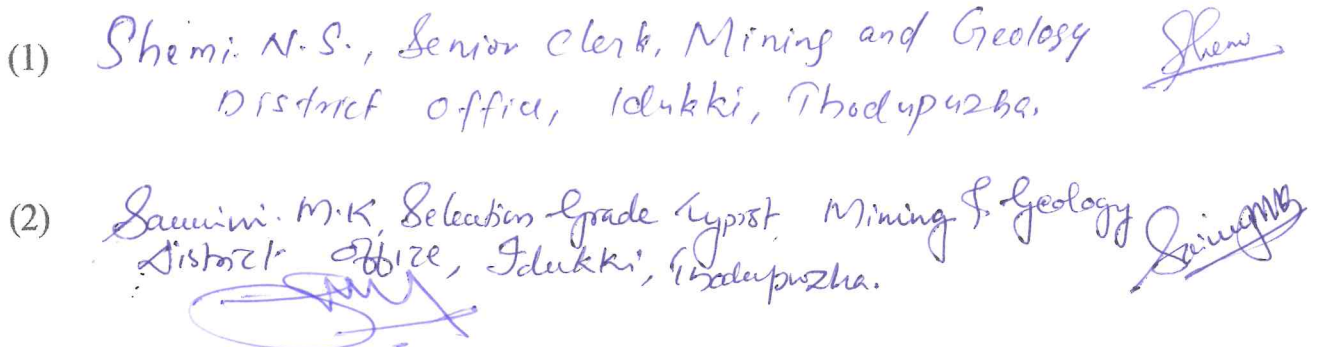 (1) Shemi. N.S., Senior Clerk, Mining and Geology
District office, Idukki, Thodupuzha.
(2) M.K, Selection Grade Typist, Mining & Geology
District Office, Idukki, Thodupuzha.